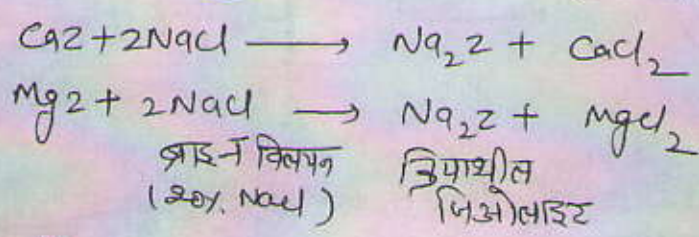 CaZ + 2NaCl ⟶ Na₂Z + CaCl₂
MgZ + 2NaCl ⟶ Na₂Z + MgCl₂
ब्राइन विलयन क्रियाशील
(20% NaCl) जिओलाइट